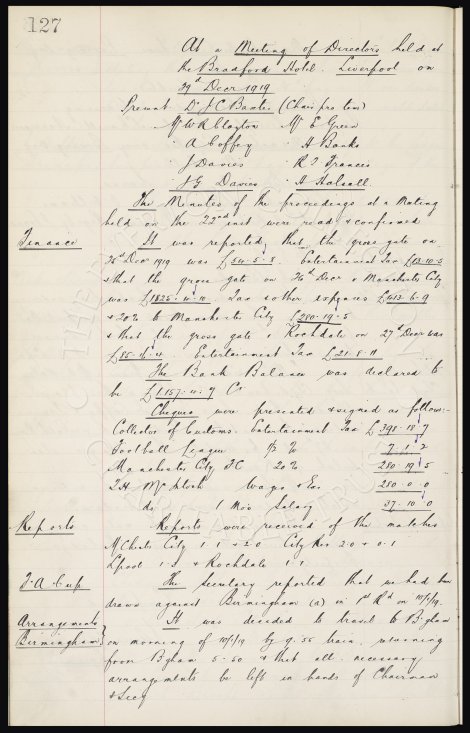 127
At a Meeting of Directors held at
the Bradford Hotel. Liverpool on
29th Decr 1919
Present Dr J C Baxter (Chair pro tem)
Mr W R Clayton Mr E Green
" A Coffey " A Banks
" J Davies " R T Frances
" J G Davies " A Halsall
The Minutes of the proceedings at a Meeting
held on the 22nd inst were read & confirmed
Finance It was reported that the gross gate on
Decr 1919 was Entertainment Tax £13-10-5
& that the gross gate on 26th Decr v Manchester City
was £1825-4-10 Tax & other expenses £413-6-9
& 20% to Manchester City £280-19-5
& that the gross gate v Rochdale on 27th Decr was
Entertainment Tax £21-8-11
The Bank Balance was declared to
be Cr
Cheques were presented & signed as follows:-
Collector of Customs. Entertainment Tax £398-18-7
Football League ½ % 7-1-2
Manchester City FC 20% 280-19-5
T.H. McIntosh Wages & Exs 280-0-0
do 1 Mos Salary 37-10-0
Reports Reports were received of the matches
M/Chester City 1-1 & 2-0 City Res 2-0 & 0-1
Lpool & Rochdale
F.A. Cup The Secretary reported that we had been
drawn against Birmingham (a) in 1st Rd on 10/1/19.
Arrangements It was decided to travel to B'gham
Birmingham on morning of 10/1/19 by 9.55 train, returning
from B'gham 5-50 & that all necessary
arrangements be left in hands of Chairman
& Secy